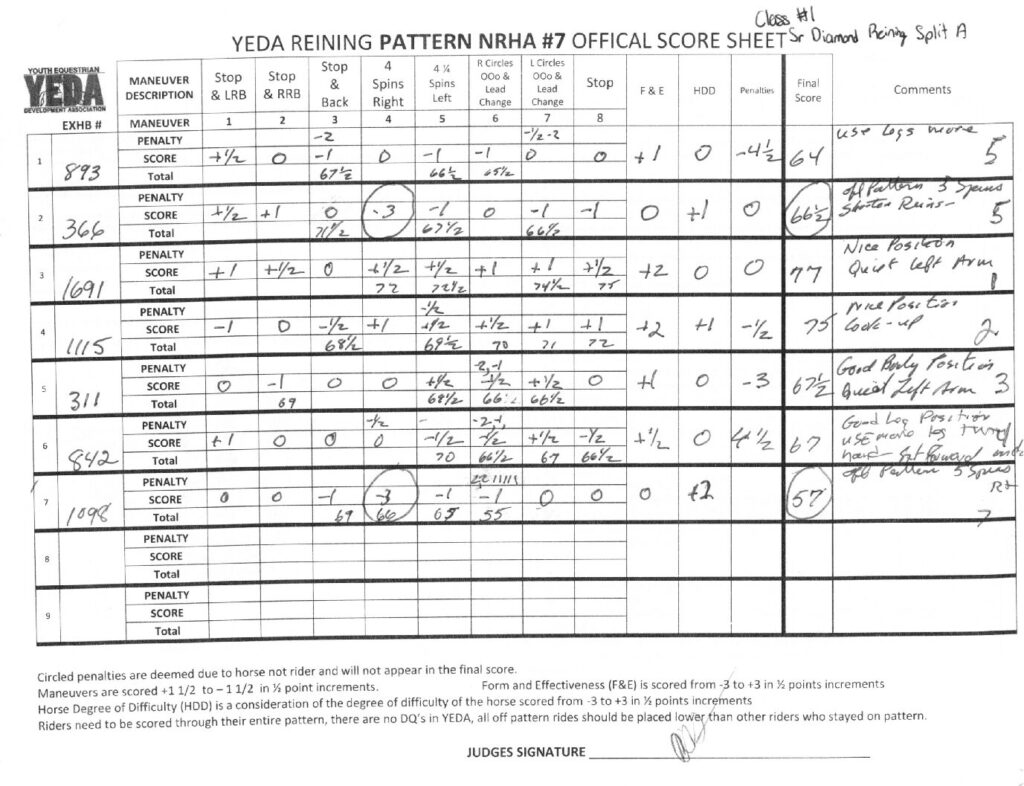 Class #1
YEDA REINING PATTERN NRHA #7 OFFICAL SCORE SHEET Sr Diamond Reining Split A
YOUTH EQUESTRIAN
YEDA
DEVELOPMENT ASSOCIATION
EXHB #
MANEUVER DESCRIPTION Stop & LRB Stop & RRB Stop & Back 4 Spins Right 4 ¼ Spins Left R Circles OOo & Lead Change L Circles OOo & Lead Change Stop F & E HDD Penalties Final Score Comments
MANEUVER 1 2 3 4 5 6 7 8
1 893
PENALTY -2 -½ -2 use legs more
SCORE +½ 0 -1 0 -1 -1 0 0 +1 0 -4½ 64 5
Total 67½ 66½ 65½
2 366
PENALTY off Pattern 3 Spins
SCORE +½ +1 0 -3 -1 0 -1 -1 0 +1 0 66½ Shorten Reins- 5
Total 71½ 67½ 66½
3 1691
PENALTY Nice Position
SCORE +1 +½ 0 +½ +½ +1 +1 +½ +2 0 0 77 Quiet Left Arm
Total 72 72½ 74½ 75 1
4 1115
PENALTY -½ Nice Position
SCORE -1 0 -½ +1 +½ +½ +1 +1 +2 +1 -½ 75 Look-up 2
Total 68½ 69½ 70 71 72
5 311
PENALTY -2, -1 Good Body Position
SCORE 0 -1 0 0 +½ -½ +½ 0 +1 0 -3 67½ Quiet Left Arm 3
Total 69 68½ 66½ 66½
6 842
PENALTY -½ -2 -1 Good Leg Position
SCORE +1 0 0 0 -½ -½ +½ -½ +½ 0 4½ 67 use more leg
Total 70 66½ 67 66½ hand
7 1098
PENALTY off Pattern 5 Spins
SCORE 0 0 -1 -3 -1 -1 0 0 0 +2 57 Rt
Total 69 66 65 55 7
8
PENALTY
SCORE
Total
9
PENALTY
SCORE
Total
Circled penalties are deemed due to horse not rider and will not appear in the final score.
Maneuvers are scored +1 1/2 to – 1 1/2 in ½ point increments. Form and Effectiveness (F&E) is scored from -3 to +3 in ½ points increments
Horse Degree of Difficulty (HDD) is a consideration of the degree of difficulty of the horse scored from -3 to +3 in ½ points increments
Riders need to be scored through their entire pattern, there are no DQ's in YEDA, all off pattern rides should be placed lower than other riders who stayed on pattern.
JUDGES SIGNATURE